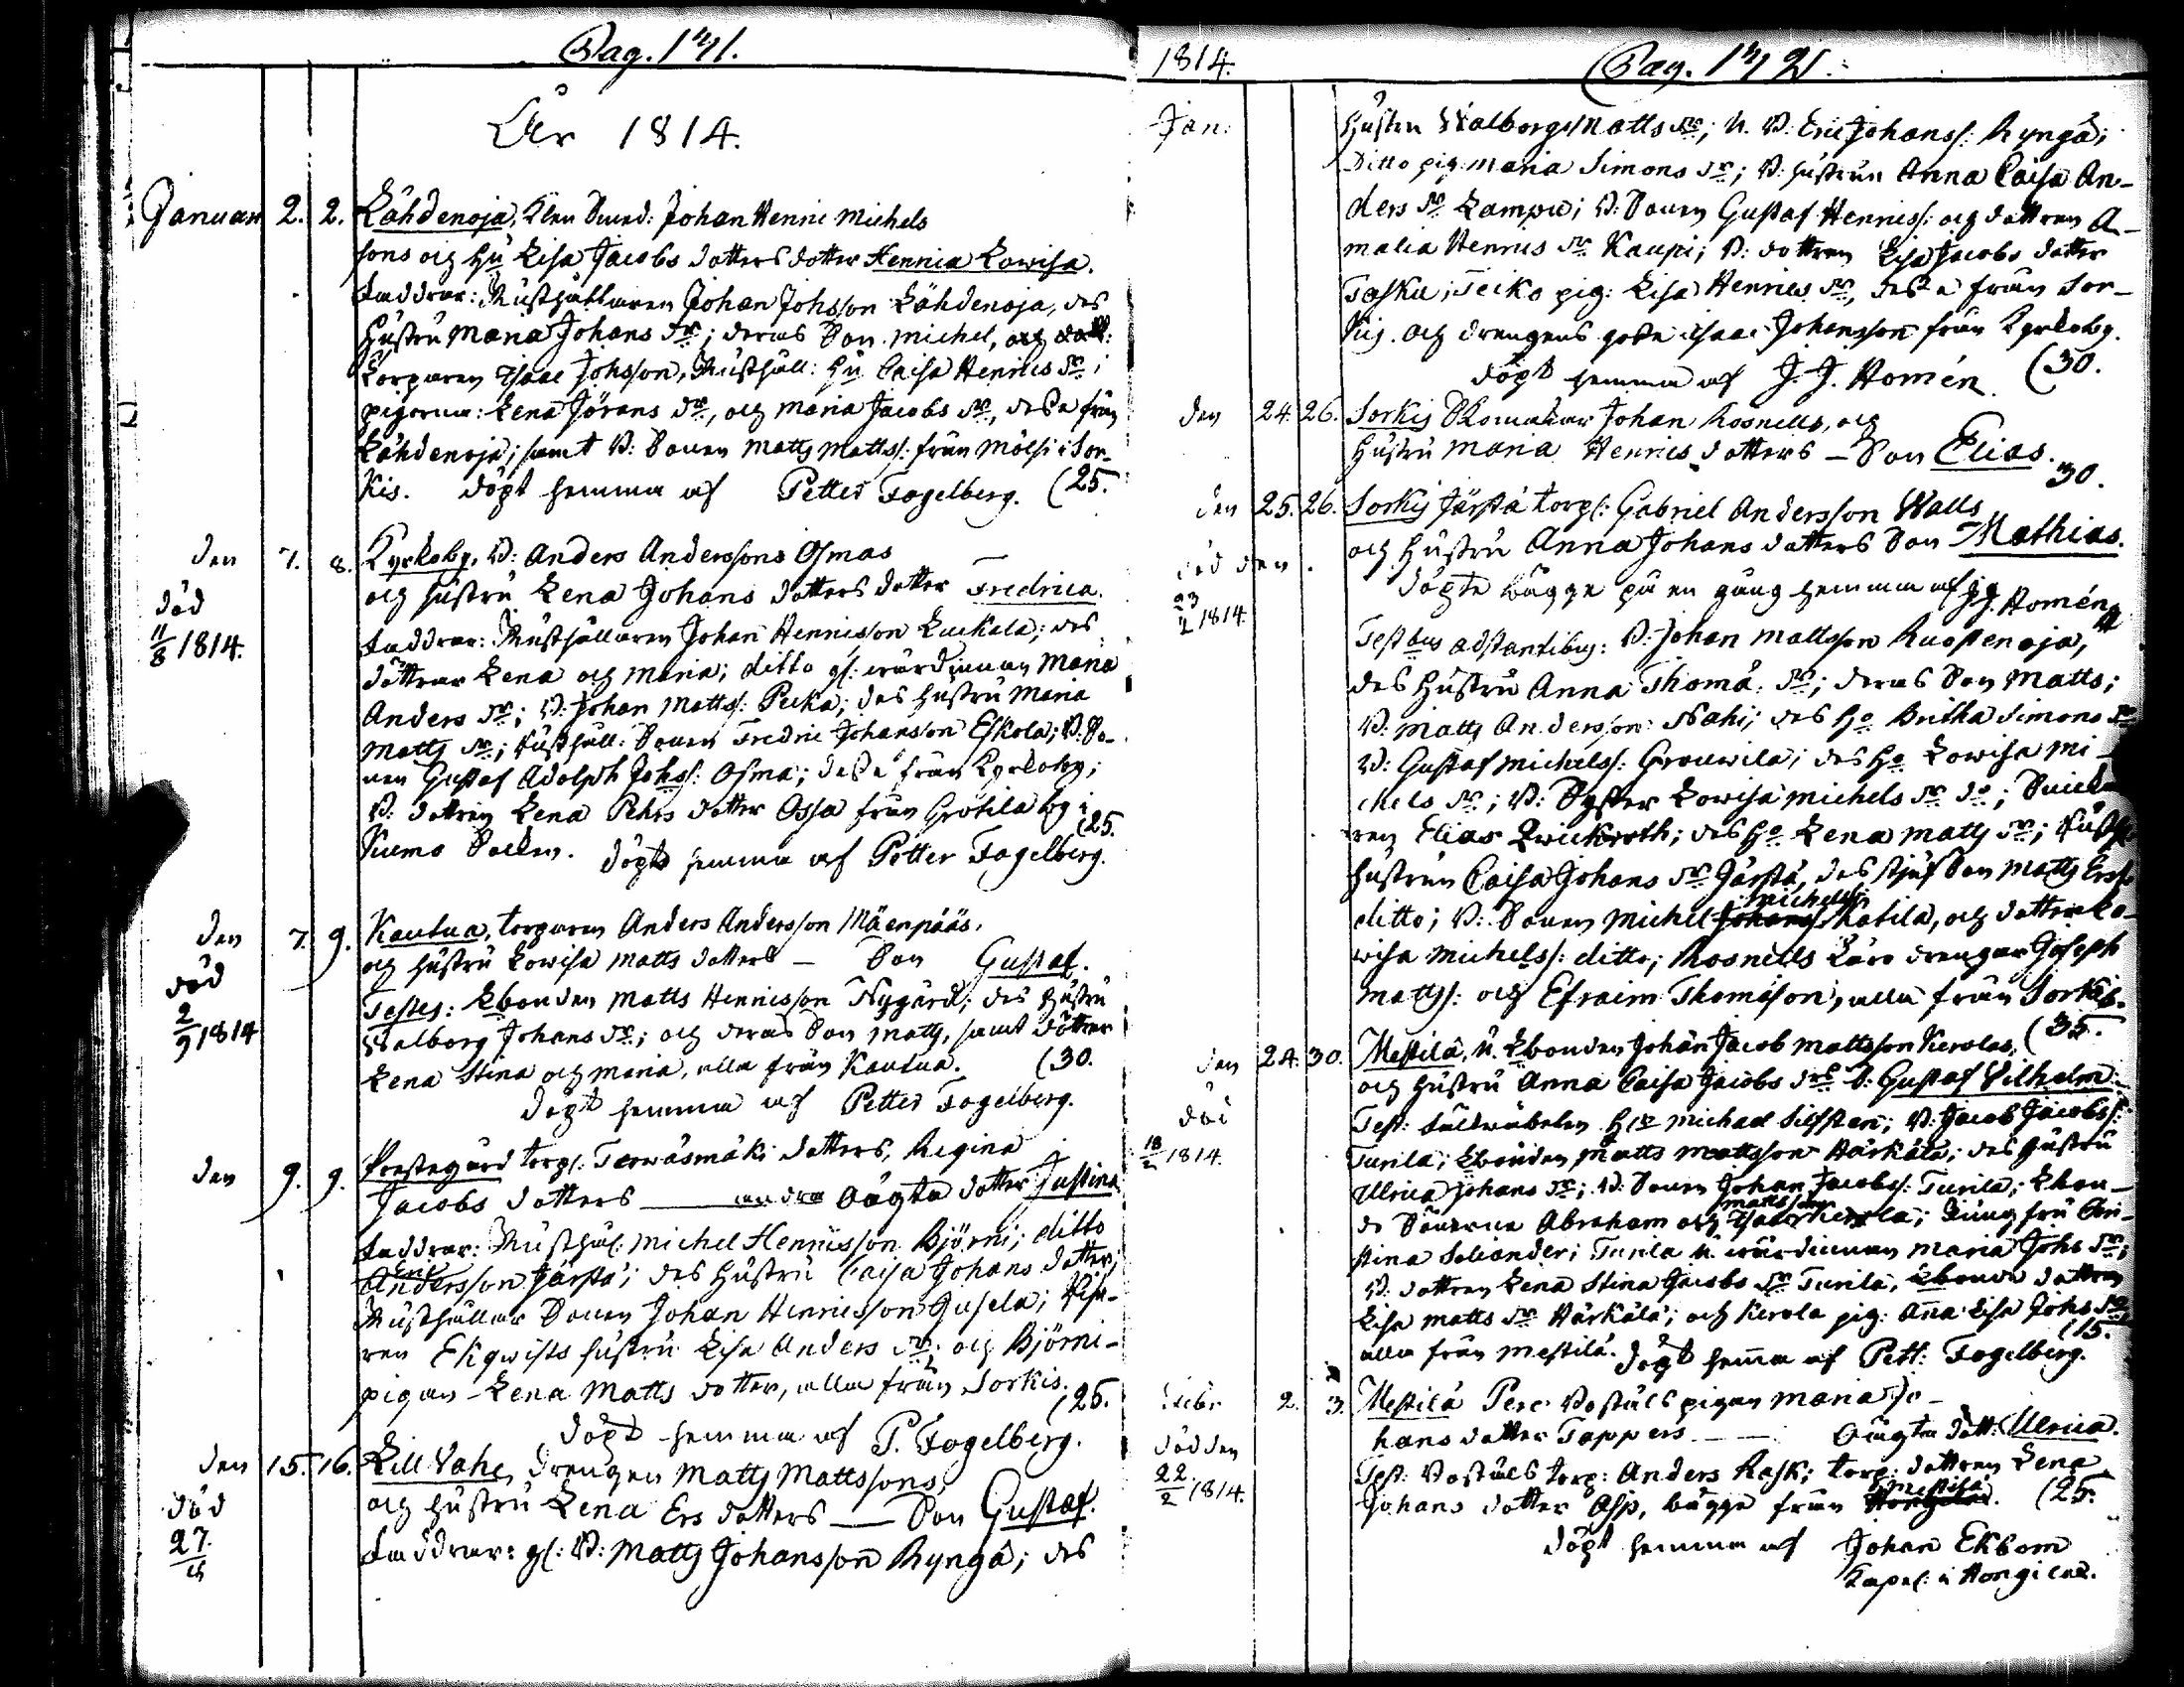 Pag. 171.
År 1814.
Januari 2. 2. Lähdenoja, Klen Smed: Johan Henric Michels
sons och Hu Lisa Jacobs dotters dotter Hennica Lowisa.
Faddrar: Rusthållaren Johan Johsson Lähdenoja, des
Hustru Maria Johans dr; deras Son Michel, och dott:
Torparen Isaac Johsson, Rusthåll: Hu Caisa Henrics dr;
pigorna: Lena Jörans dr, och Maria Jacobs dr, desse från
Lähdenoja; samt B: Sonen Matts Mattss: från Mölsi i Sor-
kis. döpt hemma af Petter Fogelberg. (25.
den 7. 8. Kyrkoby, B: Anders Anderssons Osmas
död 11/8 1814.
och Hustru Lena Johans dotters dotter Fredrica.
Faddrar: Rusthållaren Johan Henricsson Luckala; des
döttrar Lena och Maria; ditto gl: wärdinnan Maria
Anders dr; B: Johan Matts: Pecka; des Hustru Maria
Matts dr; Rusthåll: Sonen Fredric Johansson Eskola; B: So-
nen Gustaf Adolph Johss: Osma; desse från Kyrkoby;
B: dottren Lena Pehrs dotter Ossa från Grötila by i
Kiumo Socken. döpt hemma af Petter Fogelberg. (25.
den 7. 9. Kautua, torparen Anders Andersson Mäenpääs,
död 2/9 1814
och Hustru Lowisa Matts dotters – Son Gustaf.
Testes: Åbonden Matts Henricsson Nygård; des Hustru
Walborg Johans dr; och deras Son Matts, samt döttrar
Lena Stina och Maria, alla från Kautua. (30.
döpt hemma af Petter Fogelberg.
den 9. 9. Prestegård torp: Terwasmäki dotters, Regina
Jacobs dotters – andra Oägta dotter Justina
Faddrar: Rusthål: Michel Henricsson Björni; ditto
Eric
Andersson Järstä; des Hustru Caisa Johans dotter;
Rusthållar Sonen Johan Henricsson Jusela;
ren Ekqwists Hustru Lisa Anders dr; och Björni-
pigan – Lena Matts dotter, alla från Sorkis.
döpt hemma af P. Fogelberg. (25.
den 15. 16. Lill Vahe, drengen Matts Mattssons,
död 27.
och Hustru Lena Ers dotters – Son Gustaf.
Faddrar: gl: B: Matts Johansson Ryngä; des
1814. Pag. 172.
Jan: Hustru Walborg Matts dr; U. B: Eric Johanss: Ryngä;
Ditto pig: Maria Simons dr; B: Hustrun Anna Caisa An-
ders dr Lampu; B: Sonen Gustaf Henricss: och dottren A-
malia Henrics dr Kaupi; B: dottren Lisa Jacobs dotter
Tasku; Teiko pig: Lisa Henrics dr, desse från Sor-
kis. och drengens gosse Isaac Johansson från Kyrkoby.
döpt hemma af J. J. Homén (30.
den 24. 26. Sorkis Skomakar Johan Rosnells, och
Hustru Maria Henrics dotters – Son Elias.
30.
den 25. 26. Sorkis Järstä torp: Gabriel Andersson Walls
och Hustru Anna Johans dotters Son Mathias.
död den 23/2 1814.
döpte bägge på en gång hemma af J.J. Homén
Testbus adstantibus: B: Johan Mattsson Ruostenoja,
des Hustru Anna Thomæ dr; deras Son Matts;
B: Matts Andersson Nahi; des Ho Britha Simons dr
B: Gustaf Michels: Grouwila; des Ho Lowisa Mi-
chels dr; B: Syster Lowisa Michels dr do; Snicka
ren Elias Qwickroth; des Ho Lena Matts dr; Rusth
Hustrun Caisa Johans dr Järstä, des Stjuf Son Matts Erss
Michelss:
ditto; B: Sonen Michel Johans Skotila, och dottren Lo-
wisa Michelss: ditto; Rosnells Läro drengar Joseph
Mattss: och Efraim Thomasson, alla från Sorkis.
(35.
den 24. 30. Mestilä, U. Åbonden Johan Jacob Mattsson Kerolas,
och Hustru Anna Caisa Jacobs drs S: Gustaf Vilhelm
död 18/2 1814.
Test: Fältwäbelen Hr Michael Silfsten; B: Jacob Jacobss:
Turila; Åbonden Matts Mattsson Härkälä; des Hustru
Ulrica Johans dr; B: Sonen Johan Jacobss: Turila; Åbon-
mattssöner
de Sönerna Abraham och Isac Kerola; Jungfru Chri-
stina Seliander; Turila U. wärdinnan Maria Johs dr;
B. dottren Lena Stina Jacobs dr Turila, Åbonde dottren
Lisa Matts dr Härkälä; och Kerola pig: Anna Lisa Johs dr
alla från Mestilä. döpt hemma af Pett: Fogelberg. (15.
Febr 2. 3. Mestilä Serg: Boställs pigan Maria Jo-
hans dotter Tappers – Oägta dott: Ulrica.
död den 22/2 1814.
Test: Boställs torp: Anders Rask; torp: dottren Lena
Mestilä
Johans dotter Asp, bägge från Hongilax. (25.
döpt hemma af Johan Ekbom
Capel: i Hongilax.